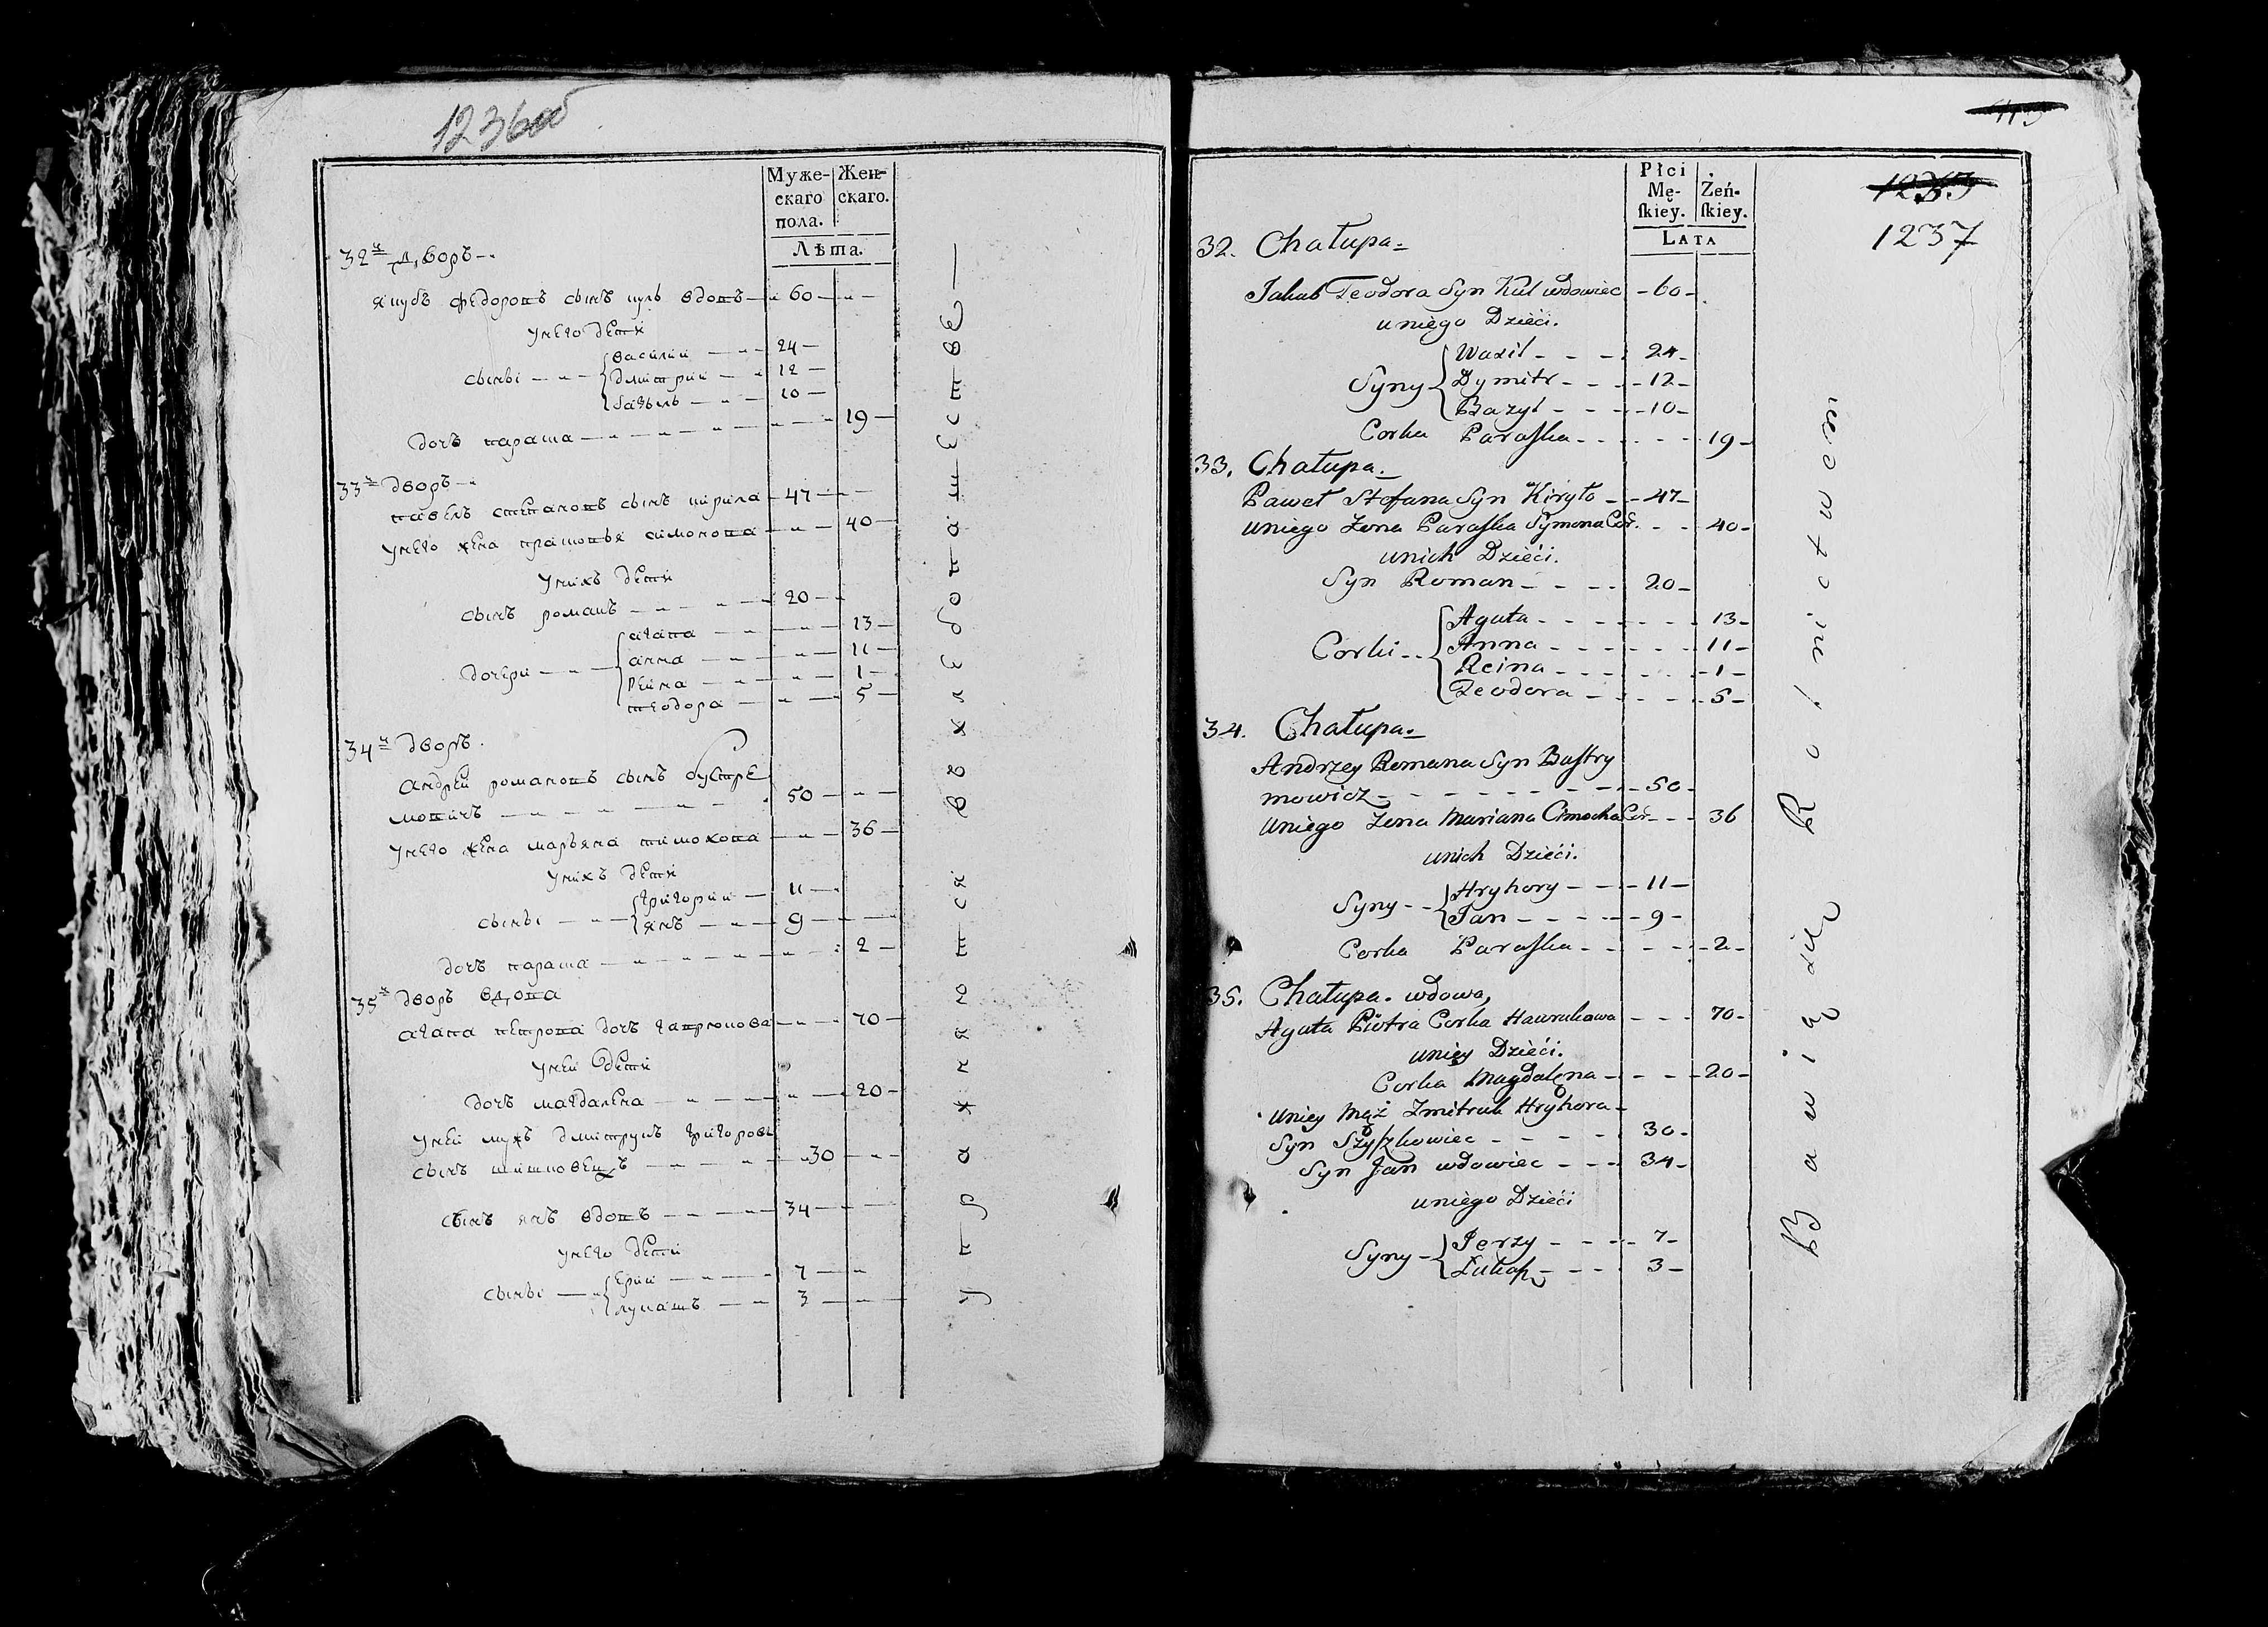 1236об
Муже-
скаго
пола.
Жен-
скаго.
Лѣта.
32й дворъ
якубъ федоровъ сынъ куль вдовъ 60
унего дети
василии 24
сыны дмитрии 12
базыль 10
дочъ параша 19
33й дворъ
павелъ степановъ сынъ кирила 47
унего жена прасковья симонова 40
унихъ дети
сынъ романъ 20
агата 13
дочери анна 11
реина 1
теодора 5
34й дворъ
андрей романовъ сынъ бустре
мовичъ 50
унего жена марьяна тимохова 36
унихъ дети
григории 11
сыны янъ 9
дочъ параша 2
35й дворъ вдова
агата петрова дочъ гаврукова 70
уней дети
дочъ магдалена 20
уней мужъ дмитрукъ григоровъ
сынъ шишковецъ 30
сынъ янъ вдовъ 34
унего дети
ерии 7
сыны лукашъ 3
упражняется въ хлебопашестве
113
1237
Płci
Mę-
ſkiey.
Żeń-
ſkiey.
LATA
32. Chałupa
Jakub Teodora Syn Kul wdowiec 60
uniego Dzieći.
Waſil 24
Syny Dymitr 12
Bazyl 10
Corka Paraſka 19
33. Chałupa
Paweł Stefana Syn Kiryło 47
uniego Zona Paraſka Symona Cor. 40
unich Dzieći.
Syn Roman 20
Agata 13
Corki Anna 11
Reina 1
Teodora 5
34. Chałupa
Andrzey Romana Syn Buſtry
mowicz 50
uniego Zona Mariana Cimocha Cor. 36
unich Dzieći.
Hryhory 11
Syny Jan 9
Corka Paraſka 2
35. Chałupa. wdowa,
Agata Piotra Corka Hawrukowa 70
uniey Dzieći.
Corka Magdalena 20
uniey Mąż Zmitruk Hryhora
Syn Szyſzkowiec 30
Syn Jan wdowiec 34
uniego Dzieći
Jerzy 7
Syny Łukaſz 3
Bawią się Rolnictwem